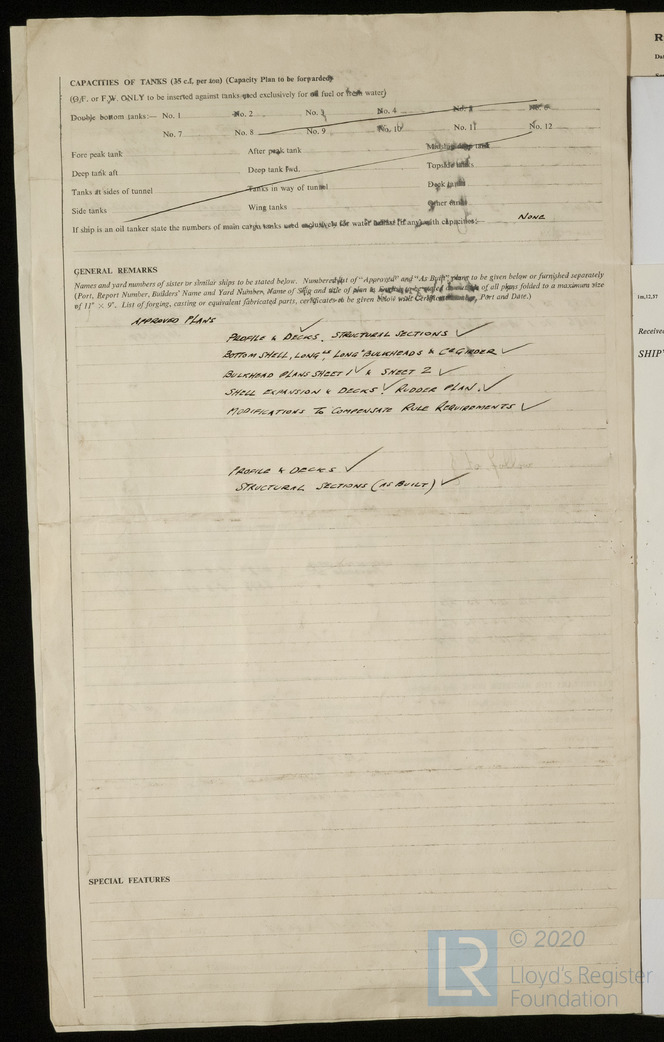 CAPACITIES OF TANKS (35 c.f. per ton) (Capacity Plan to be forwarded)
(O.F. or F.W. ONLY to be inserted against tanks used exclusively for oil fuel or fresh water)
Double bottom tanks:— No. 1 No. 2 No. 3 No. 4 No. 5 No. 6
No. 7 No. 8 No. 9 No. 10 No. 11 No. 12
Fore peak tank After peak tank
Deep tank aft Deep tank fwd. Topside tanks
Tanks at sides of tunnel Tanks in way of tunnel Deck tanks
Side tanks Wing tanks Other tanks
If ship is an oil tanker state the numbers of main cargo tanks used exclusively for water ballast (if any) with capacities:— NONE
GENERAL REMARKS
Names and yard numbers of sister or similar ships to be stated below. Numbered list of "Approved" and "As Built" plans to be given below or furnished separately
(Port, Report Number, Builders' Name and Yard Number, Name of Ship and title of plan of all plans folded to a maximum size
of 11" × 9". List of forging, casting or equivalent fabricated parts, certificates to be given below with Port and Date.)
APPROVED PLANS
PROFILE & DECKS, STRUCTURAL SECTIONS ✓
BOTTOM SHELL, LONG LS, LONG'L BULKHEADS & CR GIRDER ✓
BULKHEAD PLANS SHEET 1 ✓ & SHEET 2 ✓
SHELL EXPANSION & DECKS ✓ RUDDER PLAN. ✓
MODIFICATIONS TO COMPENSATE RULE REQUIREMENTS ✓
PROFILE & DECKS ✓
STRUCTURAL SECTIONS (AS BUILT) ✓
SPECIAL FEATURES
LR © 2020
Lloyd's Register
Foundation
R
Dat
1m,12,57
Received
SHIP'